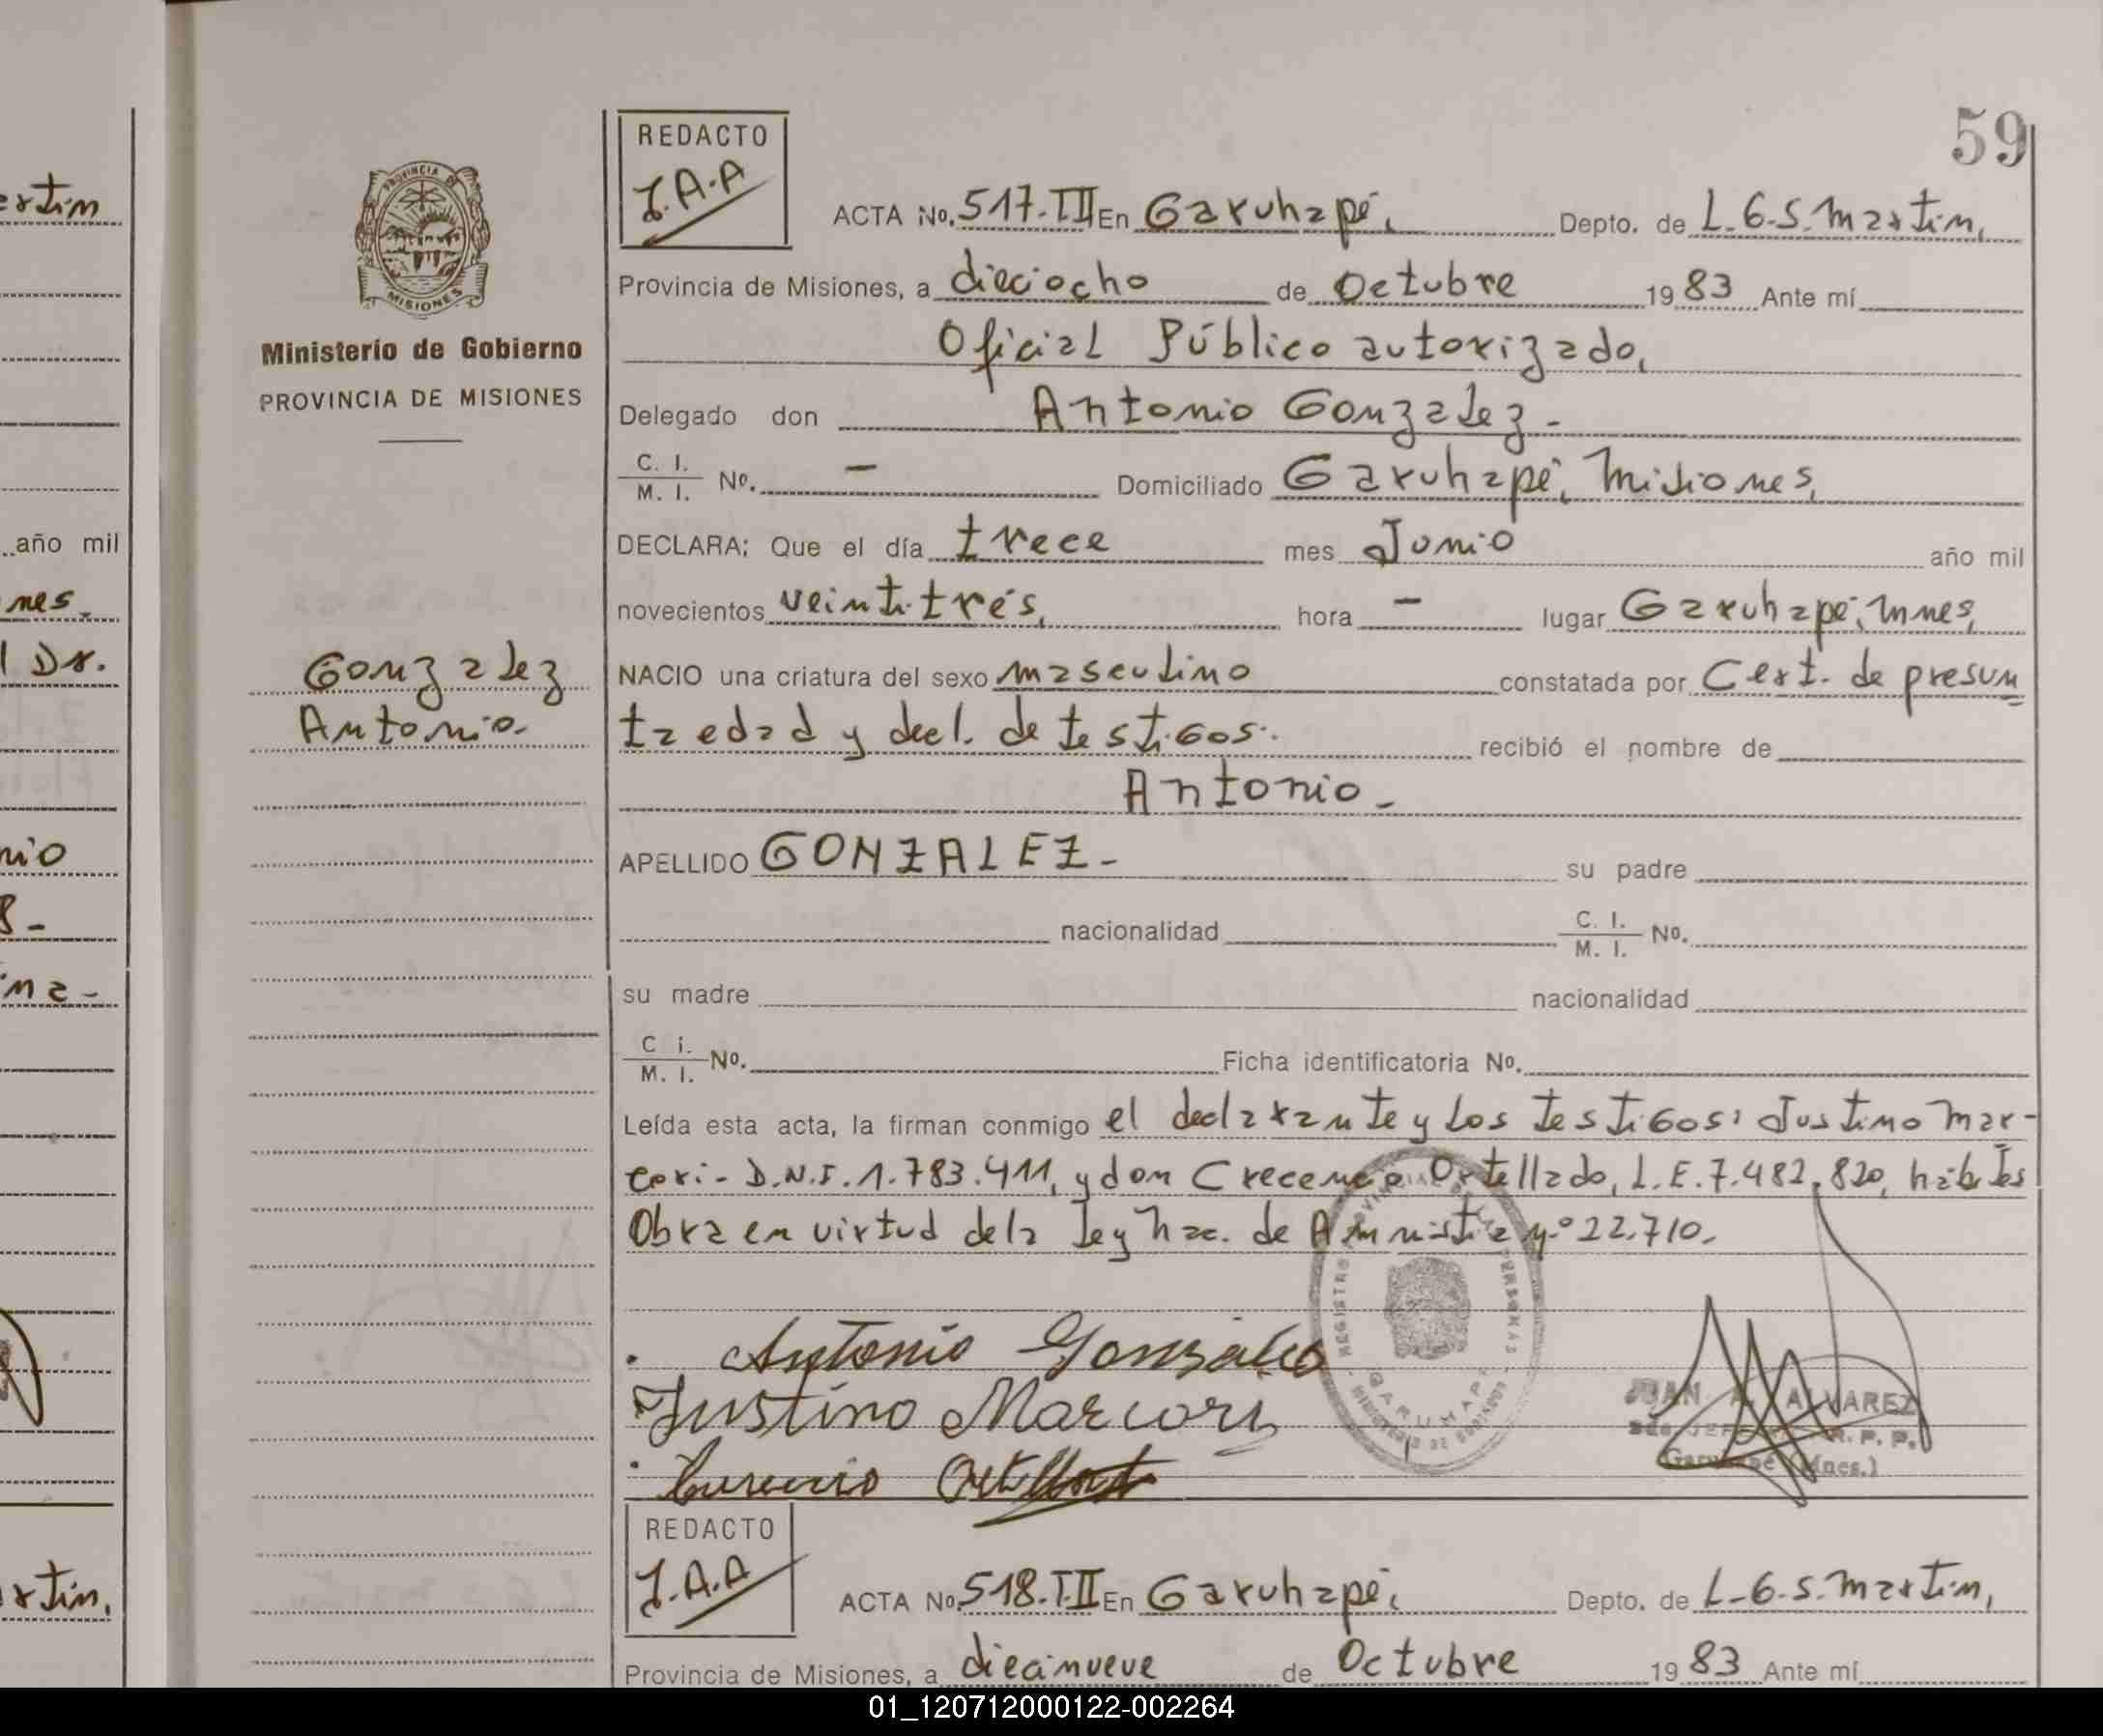 59
REDACTO
J.A.A
ACTA No. 517-T II En Garuhapé, Depto. de L.G.S.Martin,
Provincia de Misiones, a dieciocho de Octubre 1983 Ante mí
Oficial Público autorizado,
Delegado don Antonio Gonzalez-
C. I. / M. I. No. - Domiciliado Garuhapé, Misiones,
DECLARA: Que el día trece mes Junio año mil
novecientos veintitrés, hora - lugar Garuhapé, Mnes,
NACIO una criatura del sexo masculino constatada por Cert. de presun
ta edad y decl. de testigos. recibió el nombre de
Antonio-
APELLIDO GONZALEZ- su padre
nacionalidad C. I. / M. I. No.
su madre nacionalidad
C i. / M. I. No. Ficha identificatoria No.
Leída esta acta, la firman conmigo el declarante y los testigos: Justino Mar-
cori- D.N.I. 1.783.411, y don Crecencio Ortellado, L.E. 7.482.820, hábiles
Obra en virtud de la Ley Nac. de Amnistia nº 22.710.
Antonio Gonzalez
Justino Marcori
Ortellado
REGISTRO PROVINCIAL DE LAS PERSONAS
GARUHAPE
MINISTERIO DE GOBIERNO
JUAN A. ALVAREZ
R. P. P.
Garuhapé (Mnes.)
PROVINCIA DE
MISIONES
Ministerio de Gobierno
PROVINCIA DE MISIONES
Gonzalez
Antonio-
REDACTO
J.A.A
ACTA No. 518-T II En Garuhapé, Depto. de L-G.S.Martin,
Provincia de Misiones, a diecinueve de Octubre 1983 Ante mí
artin
año mil
nes.
Dr.
nio
8-
ina-
artin,
01_120712000122-002264